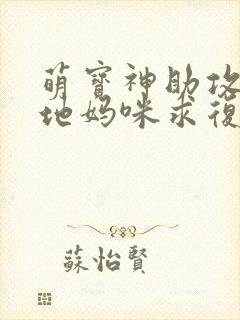 萌寶神助攻
地媽咪求復
蘇怡賢